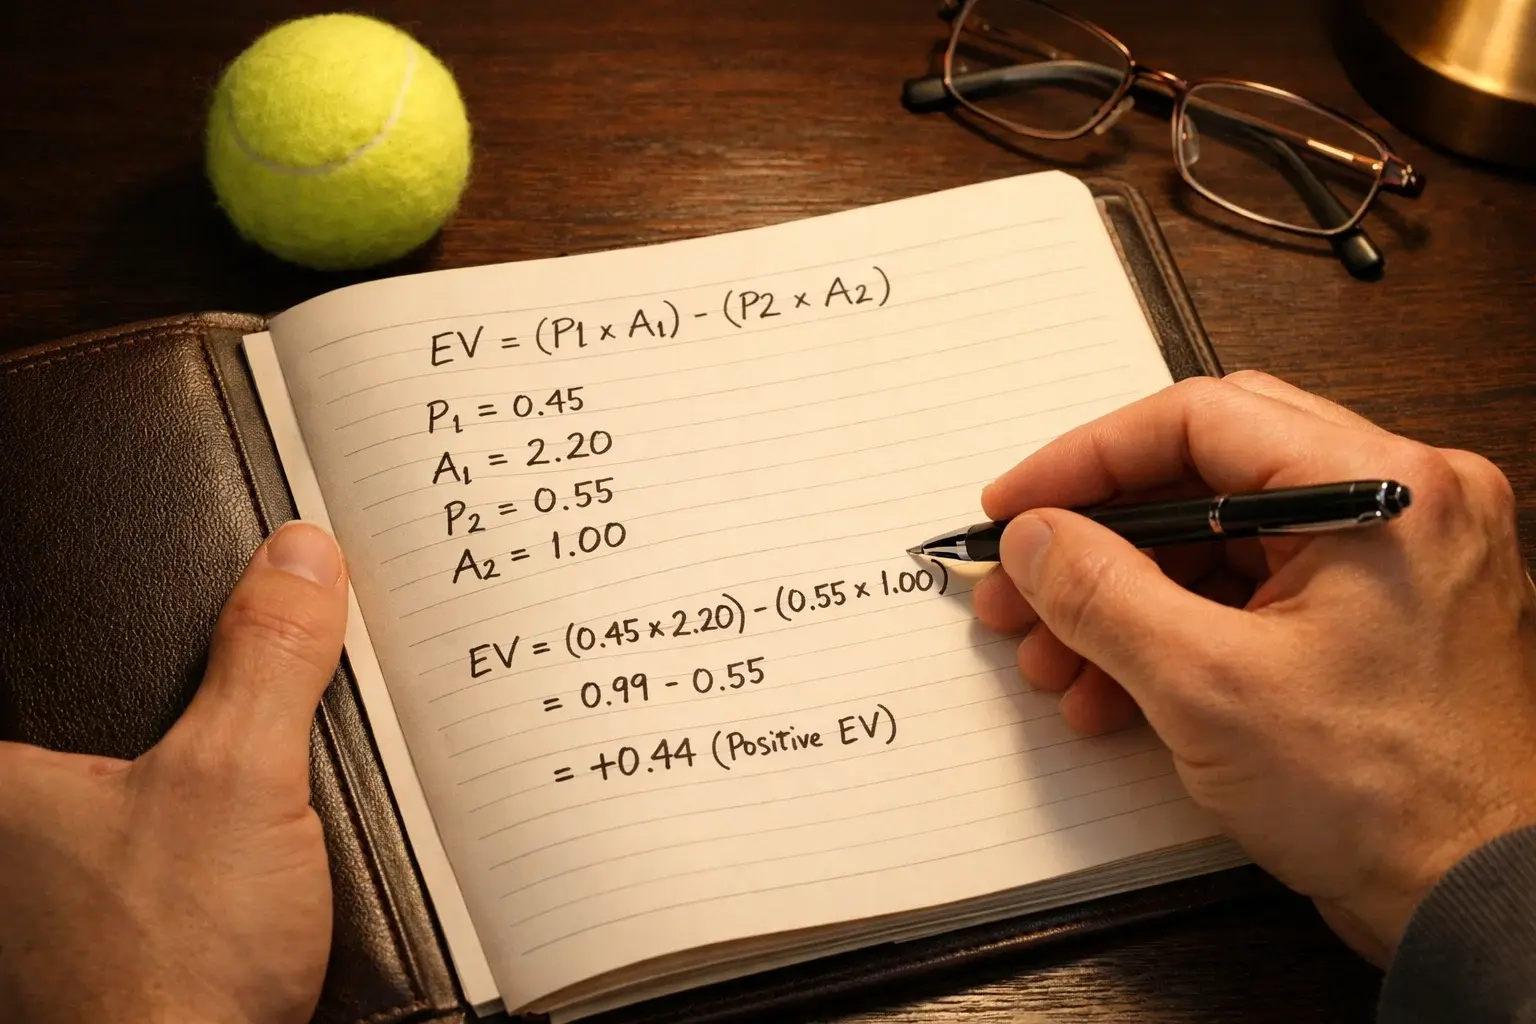 EV = (P1 × A₁) - (P2 × A2)
P₁ = 0.45
A₁ = 2.20
P2 = 0.55
A2 = 1.00
EV = (0.45 × 2.20) - (0.55 × 1.00)
= 0.99 - 0.55
= +0.44 (Positive EV)